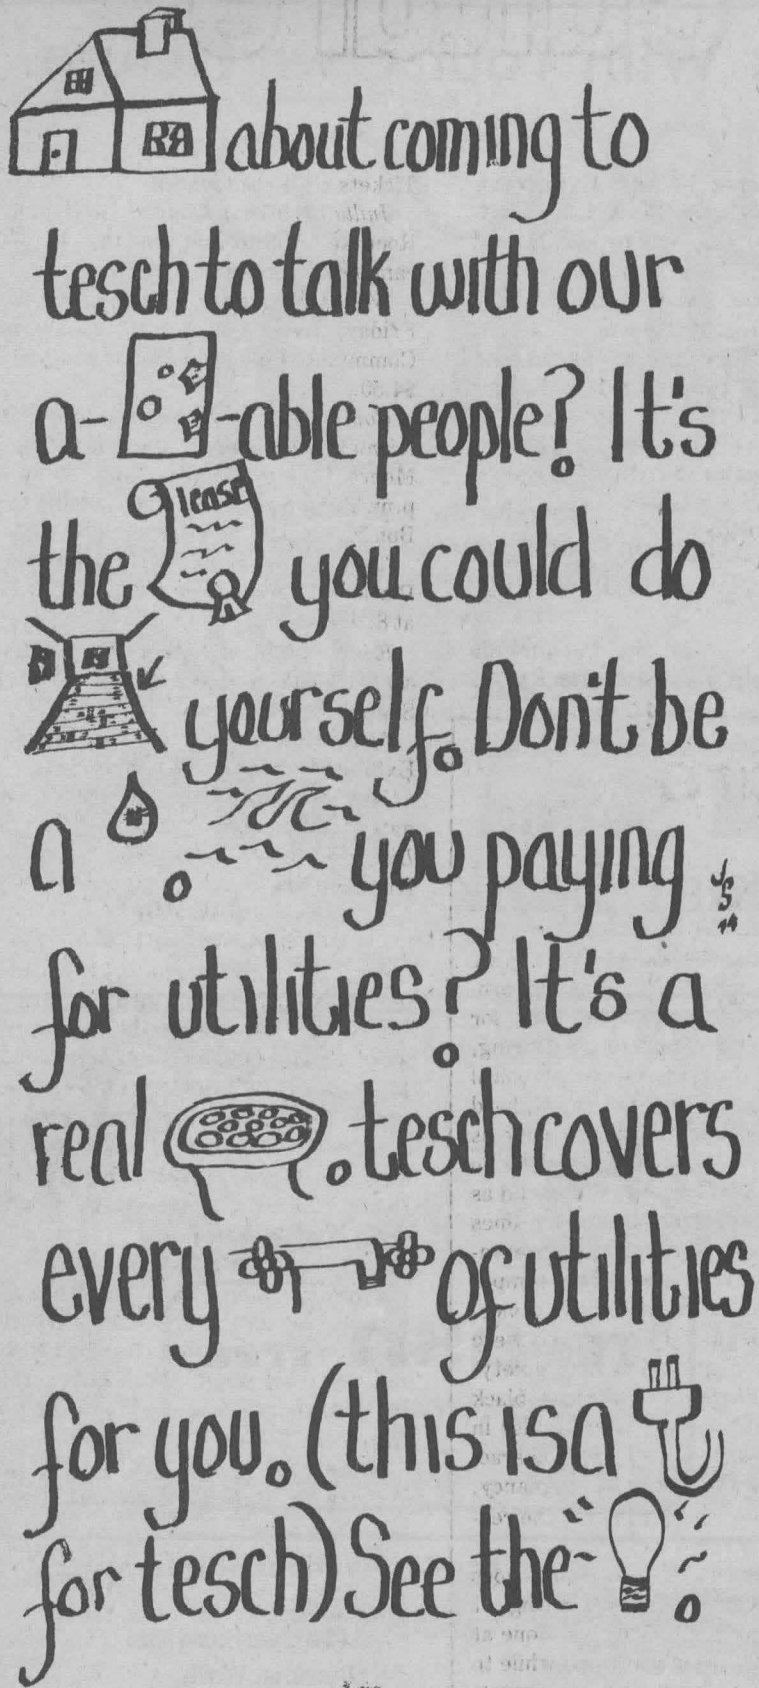 about coming to
tesch to talk with our
a- -able people? It's
the lease you could do
yourself. Don't be
a . you paying
for utilities? It's a
real . tesch covers
every of utilities
for you. (this is a
for tesch) See the .